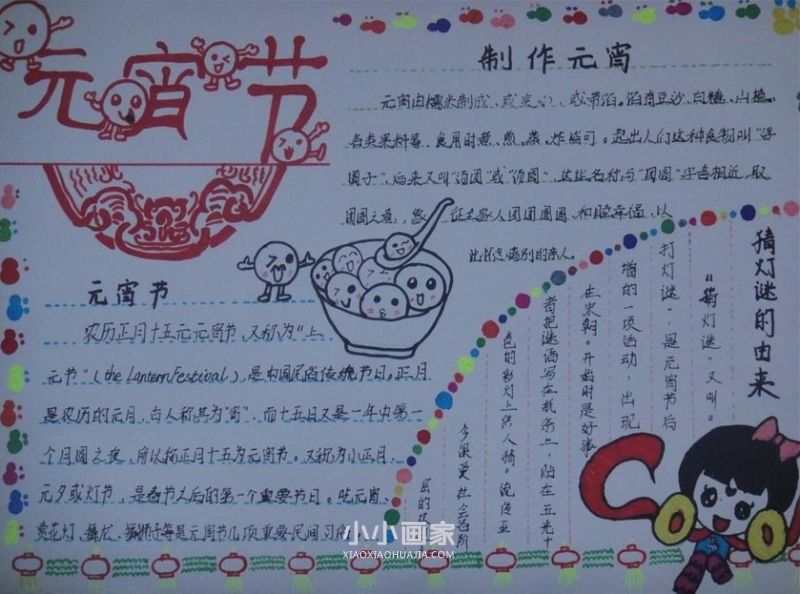 元宵节
制作元宵
元宵由糯米制成，或实心，或带馅。馅有豆沙、白糖、山楂、
各类果料等，食用时煮、煎、蒸、炸皆可。起出人们这种食物叫“浮
圆子”，后来又叫“汤团”或“汤圆”，这些名称与“团圆”字音相近，取
团圆之意，象征全家人团团圆圆，和睦幸福，以
出怀念离别的亲人。
元宵节
农历正月十五元元宵节，又称为“上
元节”（the Lantern Festival），是中国民俗传统节日。正月
是农历的元月，古人称其为“宵”，而十五日又是一年中第一
个月圆之夜，所以称正月十五为元宵节。又称为小正月、
元夕或灯节，是春节之后的第一个重要节日。吃元宵、
赏花灯、舞龙、舞狮子等是元宵节几项重要民间习俗
猜灯谜的由来
“猜灯谜”又叫“
打灯谜”，是元宵节后
增的一项活动，出现
在宋朝。开始时是好事
者把谜语写在纸条上，贴在五光十
色的彩灯上供人猜。流传至
今深受社会各阶
层的
小小画家
XIAOXIAOHUAJIA.COM